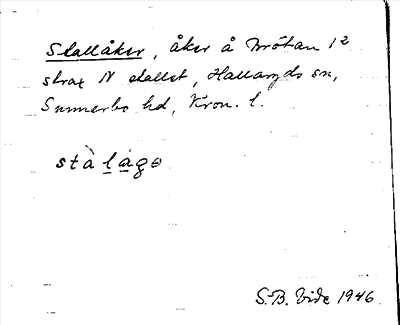 Stallåker, åker å Brötan 12
strax N stallet, Hallaryds sn,
Sunnerbo hd, Kron. l.
stà lágə
S.-B. Vide 1946.